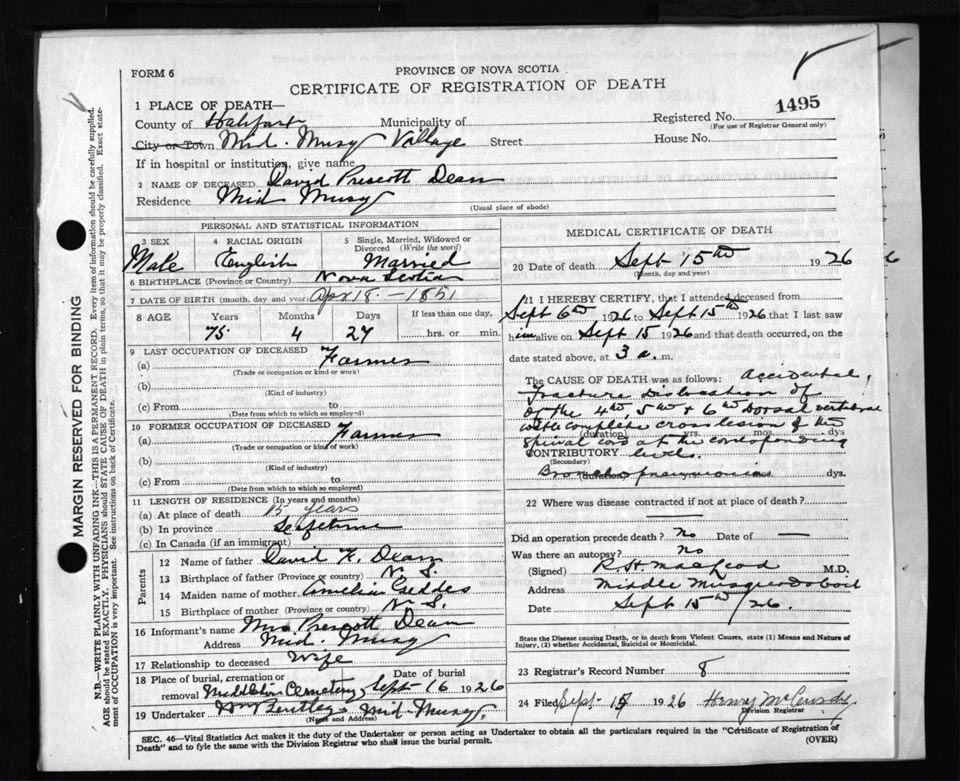 FORM 6
PROVINCE OF NOVA SCOTIA
CERTIFICATE OF REGISTRATION OF DEATH
1495
1 PLACE OF DEATH—
County of Halifax Municipality of
Registered No.
(For use of Registrar General only)
City or Town Mid. Musq Village Street House No.
If in hospital or institution, give name
2 NAME OF DECEASED David Prescott Dean
Residence Mid Musq
(Usual place of abode)
PERSONAL AND STATISTICAL INFORMATION
3 SEX 4 RACIAL ORIGIN 5 Single, Married, Widowed or Divorced (Write the word)
Male English Married
6 BIRTHPLACE (Province or Country) Nova Scotia
7 DATE OF BIRTH (month, day and year) Apr 18 - 1851
8 AGE Years Months Days If less than one day,
75 4 27 hrs. or min.
9 LAST OCCUPATION OF DECEASED
(a) Farmer
(Trade or occupation or kind or work)
(b)
(Kind of industry)
(c) From to
(Date from which to which so employed)
10 FORMER OCCUPATION OF DECEASED
(a) Farmer
(Trade or occupation or kind of work)
(b)
(Kind of industry)
(c) From to
(Date from which to which so employed)
11 LENGTH OF RESIDENCE (In years and months)
(a) At place of death 15 years
(b) In province Lifetime
(c) In Canada (if an immigrant)
Parents
12 Name of father David F. Dean
13 Birthplace of father (Province or country) N. S.
14 Maiden name of mother Amelia Geddes
15 Birthplace of mother (Province or country) N. S.
16 Informant's name Mrs Prescott Dean
Address Mid. Musq
17 Relationship to deceased Wife
18 Place of burial, cremation or removal Date of burial
Middleton Cemetery Sept 16 1926
19 Undertaker Wm Bentley Mid-Musq.
(Name and Address)
MEDICAL CERTIFICATE OF DEATH
20 Date of death Sept 15th 1926
(Month, day and year)
21 I HEREBY CERTIFY, that I attended deceased from
Sept 6th 1926 to Sept 15th 1926 that I last saw
him alive on Sept 15 1926 and that death occurred, on the
date stated above, at 3 a. m.
The CAUSE OF DEATH was as follows: Accidental,
fracture dislocation of
of the 4th, 5th + 6th Dorsal vertebrae
with complete cross lesion of the
(duration) yrs. mos. dys
spinal cord at the corresponding
CONTRIBUTORY levels.
(Secondary)
Broncho pneumonia
(duration) dys.
22 Where was disease contracted if not at place of death?
Did an operation precede death? no Date of —
Was there an autopsy? no
(Signed) R H MacLeod M.D.
Address Middle Musquodoboit
Date Sept 15th/26.
State the Disease causing Death, or in death from Violent Causes, state (1) Means and Nature of
Injury, (2) whether Accidental, Suicidal or Homicidal.
23 Registrar's Record Number 8
24 Filed Sept 15 1926 Henry McCurdy
Division Registrar
SEC. 46—Vital Statistics Act makes it the duty of the Undertaker or person acting as Undertaker to obtain all the particulars required in the "Certificate of Registration of
Death" and to fyle the same with the Division Registrar who shall issue the burial permit.
(OVER)
MARGIN RESERVED FOR BINDING
N.B.—WRITE PLAINLY WITH UNFADING INK—THIS IS A PERMANENT RECORD. Every item of information should be carefully supplied.
AGE should be stated EXACTLY. PHYSICIANS should STATE CAUSE OF DEATH in plain terms, so that it may be properly classified. Exact state-
ment of OCCUPATION is very important. See instructions on back of Certificate.